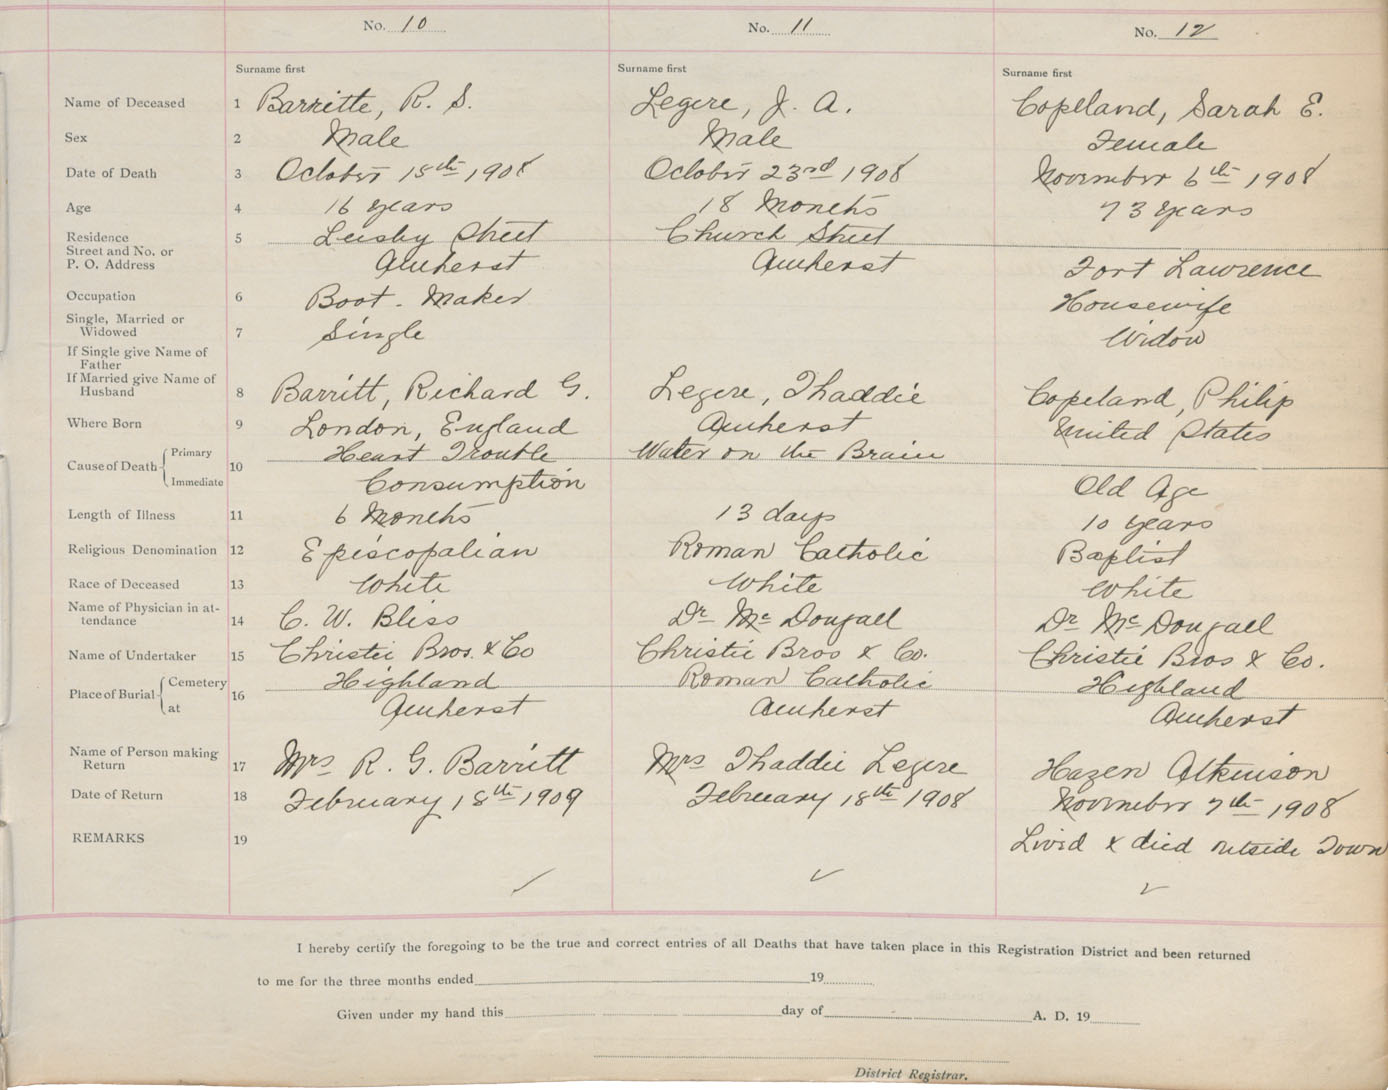 No. 10 No. 11 No. 12
Surname first Surname first Surname first
Name of Deceased 1 Barritte, R. S. Legere, J. A. Copeland, Sarah E.
Sex 2 Male Male Female
Date of Death 3 October 15th 1908 October 23rd 1908 November 6th 1908
Age 4 16 years 18 Months 73 years
Residence 5 Church Street
Street and No. or
P. O. Address Amherst Amherst Fort Lawrence
Occupation 6 Boot-Maker Housewife
Single, Married or
Widowed 7 Single Widow
If Single give Name of
Father
If Married give Name of
Husband 8 Barritt, Richard G. Legere, Thaddie Copeland, Philip
Where Born 9 London, England Amherst United States
Cause of Death Primary 10 Heart Trouble Water on the Brain
Immediate Consumption Old Age
Length of Illness 11 6 Months 13 days 10 years
Religious Denomination 12 Episcopalian Roman Catholic Baptist
Race of Deceased 13 White White White
Name of Physician in at-
tendance 14 C. W. Bliss Dr Mc Dougall Dr Mc Dougall
Name of Undertaker 15 Christie Bros. & Co Christie Bros & Co. Christie Bros & Co.
Place of Burial Cemetery 16 Highland Roman Catholic Highland
at Amherst Amherst Amherst
Name of Person making
Return 17 Mrs R. G. Barritt Mrs Thaddie Legere Hazen Atkinson
Date of Return 18 February 18th 1909 February 18th 1908 November 7th 1908
REMARKS 19 Lived & died outside Town
I hereby certify the foregoing to be the true and correct entries of all Deaths that have taken place in this Registration District and been returned
to me for the three months ended 19
Given under my hand this day of A. D. 19
District Registrar.